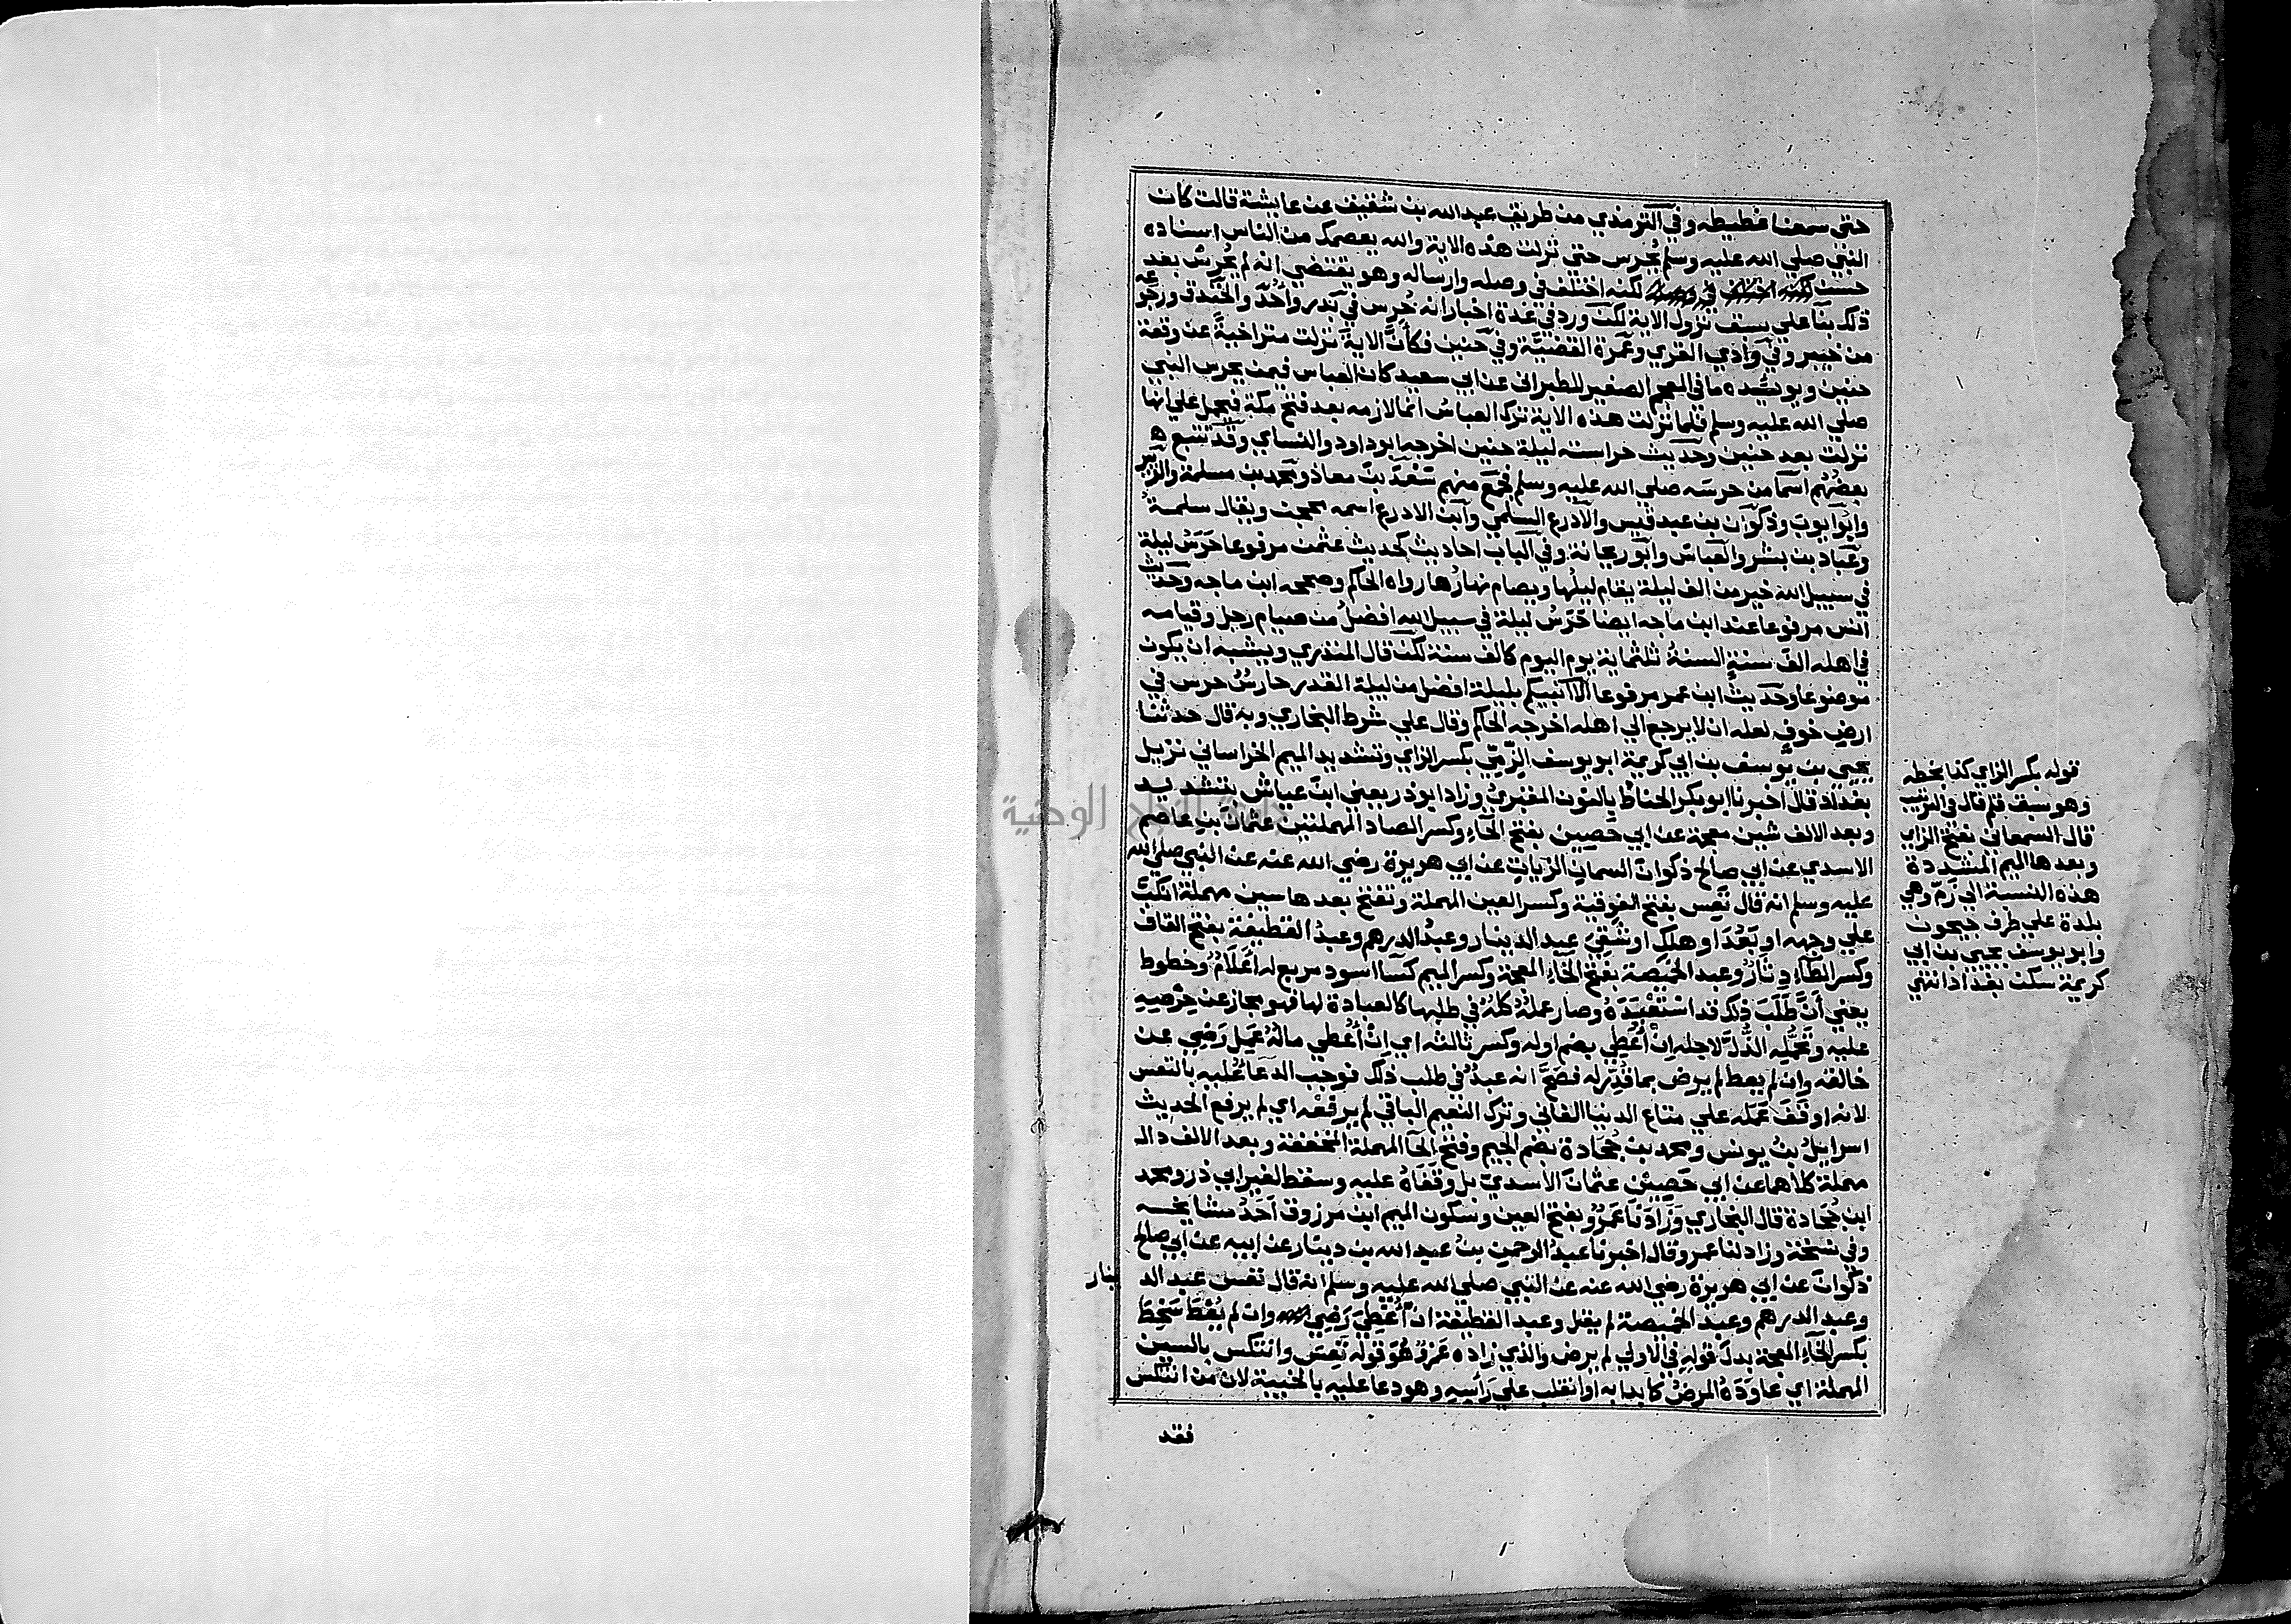 حتي سمعنا غطيطه وفي الترمذي من طريق عبدالله بن شقيق عن عايشة قالت كان
النبي صلي الله عليه وسلم يُحرس حتي نزلت هذه الاية والله يعصمك من الناس اسناده
حسن لكنه اختلف في وصله وارساله وهو يقتضي انه لم يُحرس بعد
ذلك بنا علي سبق نزول الاية لكن ورد في عدة اخبار انه حُرس في بدر واُحُد والخندق ورجوعه
من خيبر وفي وادي القري وعمرة القضية وفي حنين فكأنَّ الاية نزلت متراخية عن وقعة
حنين ويويده ما في المعجم الصغير للطبراني عن ابي سعيد كان العباس فيمن يحرس النبي
صلي الله عليه وسلم فلما نزلت هذه الاية ترك والعباس انما لازمه بعد فتح مكة فيحمل علي انها
نزلت بعد حنين وحديث حراسته ليلة حنين اخرجه ابوداود والنساي وقد تتبع
بعضهم اسما من حرسه صلي الله عليه وسلم فجمع منهم سَعْدَ بنَ معاذ ومحمد بن مسلمة والزبير
وابوايوب وذكوان بن عبد قيس والادرع السلمي وابن الادرع اسمه محجن ويقال سلمة
وعباد بن بشر والعباس وابو ريحانة وفي الباب احاديث كحديث عثمن مرفوعا حَرَسُ ليلة
في سبيل الله خير من الف ليلة يقام ليلُها ويصام نهارُها رواه الحاكم وصححه ابن ماجه وحديث
انس مرفوعا عند ابن ماجه ايضا حَرَسُ ليلة في سبيل الله افضلُ من صيام رجل وقيامه
في اهله الفَ سنةٍ السنةُ ثلثماية يوم اليوم كالف سنة لكن قال المنذري ويشبه ان يكون
موضوعا وحديث ابن عمر مرفوعا الا انبيكم بليلة افضل من ليلة القدر حارسُ حرس في
ارض خوفٍ لعله ان لا يرجع الي اهله اخرجه الحاكم وقال علي شرط البخاري وبه قال حدثنا
يحيي بن يوسف بن ابي كريمة ابو يوسف الزِّمّي بكسر الزاي وتشديد الميم الخراساني نزيل
بغداد قال اخبرنا ابو بكر الحناط بالنون المقبريُّ وزاد ابوذر يعني ابن عياش بتشديد
وبعد الالف شين معجمة عن ابي حَصِين بفتح الحاء وكسر الصاد المهملتين عثمان بن عاصم
الاسدي عن ابي صالح ذكوان السمان الزيات عن ابي هريرة رضي الله عنه عن النبي صلي الله
عليه وسلم انه قال تَعِس بفتح الفوقية وكسر العين المهملة وتفتح بعدها سين مهملة انكبَّ
علي وجهه او بَعُدَ او هلك او شَقِيَ عبد الدينار وعبدُ الدرهم وعبدُ القطيفة بفتح القاف
وكسر الطاء دثار وعبد الخميصة بفتح الخاء المعجمة وكسر الميم كسآ اسود مربع له اَعْلَامٌ وخطوط
يعني أنَّ طَلَبَ ذلك قد اسْتَعْبَدَهُ وصار عملُهُ كلُّهُ في طلبها كالعبادة لها فهو مجاز عن حِرْصِهِ
عليه وتَحَمُّلِهِ الذُّلَّ لاجله اِنْ اُعْطِي بضم اوله وكسر ثالثه اي اِنْ أُعْطِي مالَهُ عَمِلَ رَضِي عن
خالقه وان لم يعط لم يرض بما قُدِّر له فصَحَّ انه عبدٌ في طلب ذلك فوجب الدعا عليه بالتعس
لانه اوقَفَ عَمَله علي متاع الدنيا الفاني وترك النعيم الباقي لم يرفعه اي لم يرفع الحديث
اسرايلُ بنُ يونس ومحمد بن جُحادة بضم الجيم وفتح الحا المهملة المخففة وبعد الالف دال
مهملة كلاهما عن ابي حَصِين عثمانَ الاسديِّ بل وقَفَاهُ عليه وسقط لغير ابي ذر ومحمد
ابن جُحادة قال البخاري وزَادَنَا عَمرٌو بفتح العين وسكون الميم ابن مرزوق اَحَدُ مشايخه
وفي نسخة وزاد لنا عمرو قال اخبرنا عبدُ الرحمن بنُ عبد الله بن دينار عن ابيه عن ابي صالح
ذكوانَ عن ابي هريرة رضي الله عنه عن النبي صلي الله عليه وسلم انه قال تعس عبد الد ينار
وعبد الدرهم وعبد الخميصة لم يقل وعبد القطيفة ان اُعْطِيَ رَضِي وان لم يُعْطَ سَخِطَ
بكسر الخاء المعجمة بدلَ قوله في الاولي لم يرض والذي زاده عَمرٌو هُوَ قوله تَعِسَ وانتكس بالسين
المهملة اي عاوَدَهُ المرضُ كما بدا به او انقلب علي رَأْسِهِ وهو دعا عليه بالخيبة لان من انتكس
فقد
قوله بكسر الزاي كذا بخطه
وهو سبق قلم قال في الترتيب
قال السمعاني بفتح الزاي
وبعدها الميم المشددة
هذه النسبة الي زَمّ وهي
بلدة علي طرف جيحون
وابو يوسف يحيي بن ابي
كريمة سكن بغداد انتهي
جامعة النجاح الوطنية